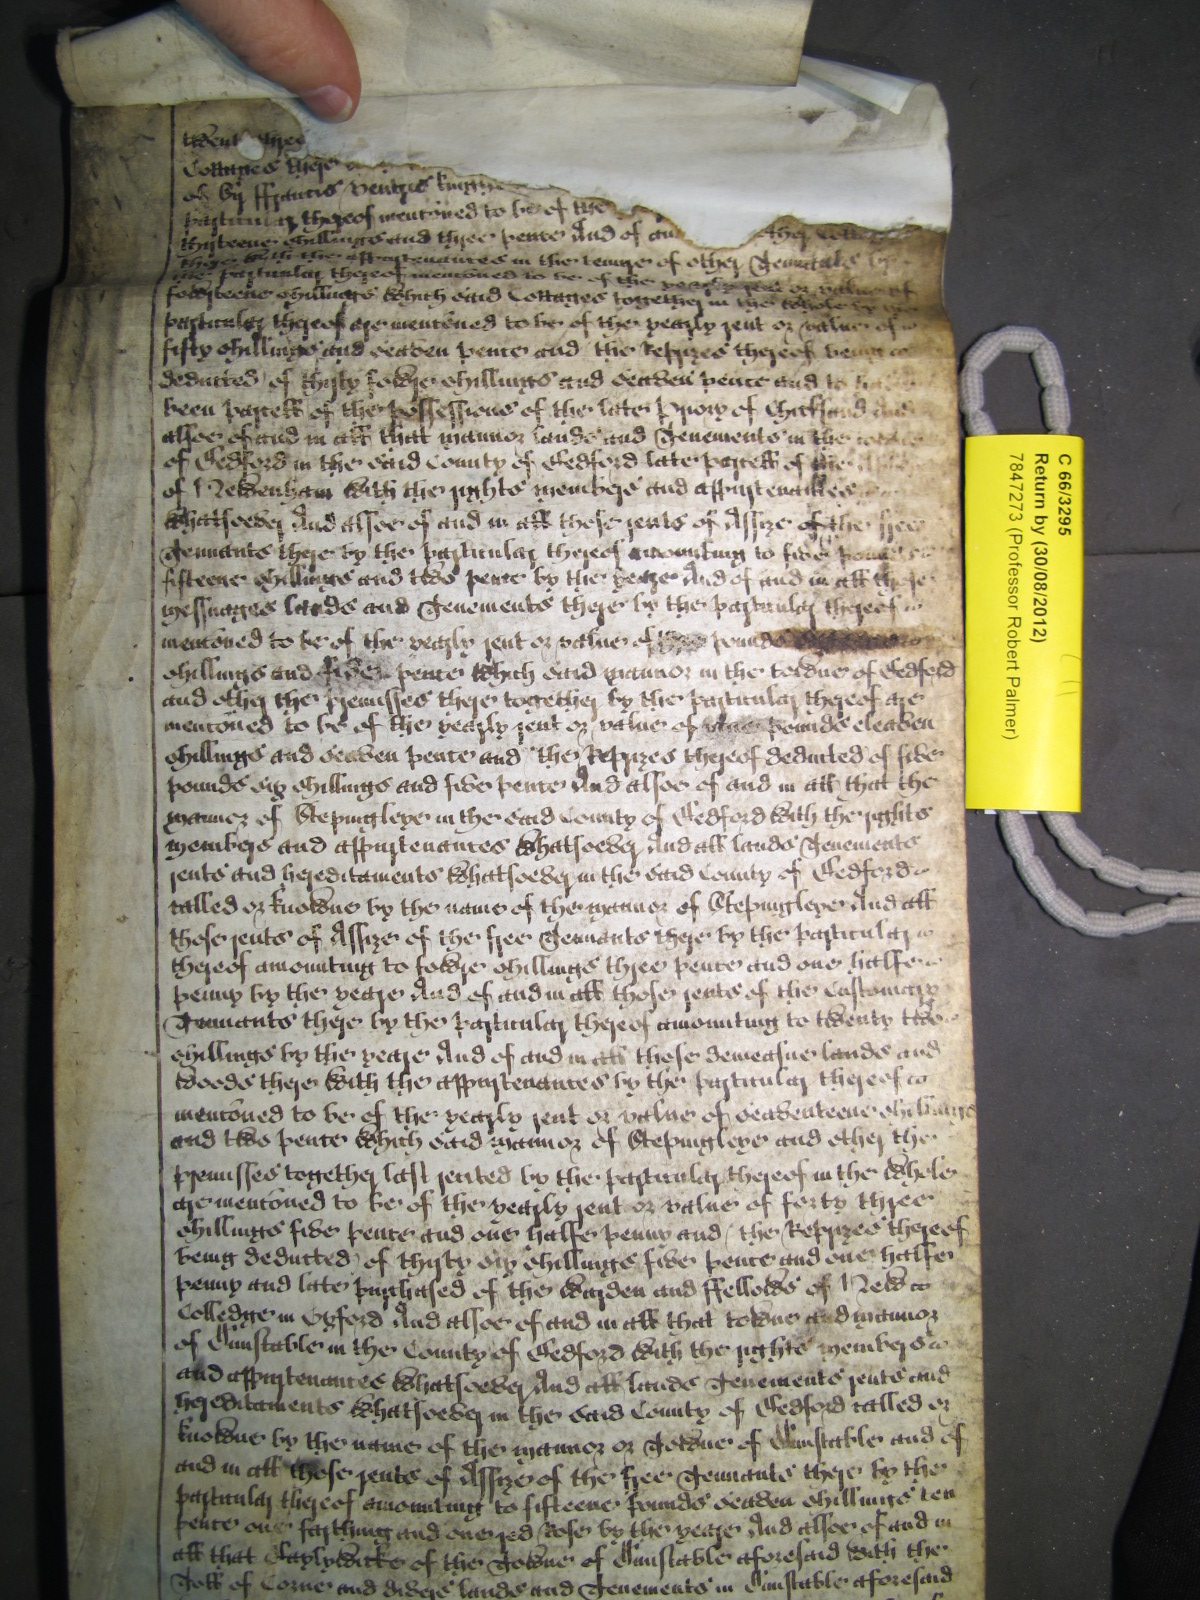 Cottages there
of by Ffrancis Ventris knight
particular thereof mentoned to be of the
thirteene shillings and three pence And of and
there with the appurtenances in the tenure of other Tenntals by
the particular thereof mentoned to be of the yearly rent or value of
fowrteene shillings which said Cottages together in the whole by the
particular thereof are mentoned to be of the yearly rent or value of
fifty shillings and seaven pence and the Reprizes thereof being
deducted of thirty fowre shillings and seaven pence and to have
been parcell of the possessions of the late Priory of Chicksand And
alsoe of and in all that mannor lands and Tenements in the
of Bedford in the said County of Bedford late parcell of the
of Newenham with the rights members and appurtenances
whatsoever And alsoe of and in all those rents of Assize of the free
Tennants there by the particular thereof amounting to five pounds
fifteene shillings and two pence by the yeare And of and in all those
messuages lands and Tenements there by the particular thereof
mentoned to be of the yearly rent or value of pounds
shillings and five pence which said mannor in the towne of Bedford
and other the premisses there together by the particular thereof are
mentoned to be of the yearly rent or value of nine pounds eleaven
shillings and seaven pence and the Reprizes thereof deducted of five
pounds six shillings and five pence And alsoe of and in all that the
mannor of Stepingleye in the said County of Bedford with the rights
members and appurtenances whatsoever And all lands Tenements
rents and hereditaments whatsoever in the said County of Bedford
called or knowne by the name of the mannor of Stepingleye And all
those rents of Assize of the free Tennants there by the particular
thereof amounting to fowre shillings three pence and one halfe
penny by the yeare And of and in all those rents of the Customary
Tennants there by the particular thereof amounting to twenty two
shillings by the yeare And of and in all those demeasne lands and
woods there with the appurtenances by the particular thereof
mentoned to be of the yearly rent or value of seaventeene shillings
and two pence which said mannor of Stepingleye and other the
premisses together last recited by the particular thereof in the whole
are mentoned to be of the yearly rent or value of forty three
shillings five pence and one halfe penny and the Reprizes thereof
being deducted of thirty six shillings five pence and one halfe
penny and late purchased of the Warden and Ffellows of New
Colledge in Oxford And alsoe of and in all that towne and mannor
of Dunstable in the County of Bedford with the rights members
and appurtenances whatsoever And all lands Tenements rents and
hereditaments whatsoever in the said County of Bedford called or
knowne by the name of the mannor or Towne of Dunstable and of
and in all those rents of Assize of the free Tennants there by the
particular thereof amounting to fifteene pounds seaven shillings ten
pence one farthing and one red Rose by the yeare And alsoe of and in
all that Baylywicke of the Towne of Dunstable aforesaid with the
Toll of Corne and divers lands and Tenements in Dunstable aforesaid
C 66/3295
Return by (30/08/2012)
7847273 (Professor Robert Palmer)